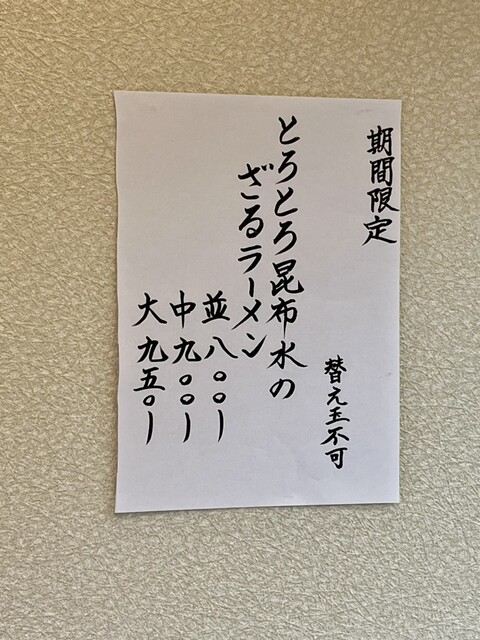 期間限定
替え玉不可
とろとろ昆布水の
ざるラーメン
並八〇〇ー
中九〇〇ー
大九五〇ー